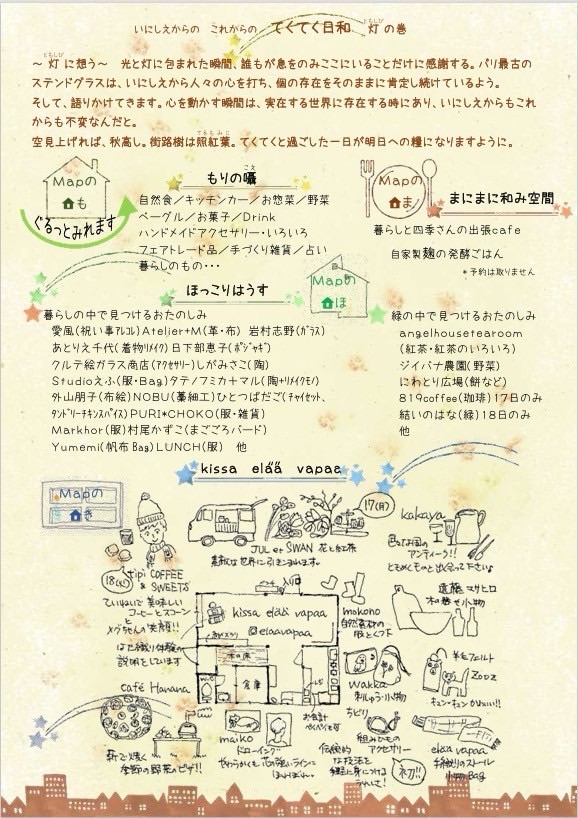 いにしえからの これからの てくてく日和 灯の巻
ともしび
ともしび
～ 灯 に想う～ 光と灯に包まれた瞬間、誰もが息をのみここにいることだけに感謝する。パリ最古の
ステンドグラスは、いにしえから人々の心を打ち、個の存在をそのままに肯定し続けているよう。
そして、語りかけてきます。心を動かす瞬間は、実在する世界に存在する時にあり、いにしえからもこれ
からも不変なんだと。
てるもみじ
空見上げれば、秋高し。街路樹は照紅葉。てくてくと過ごした一日が明日への糧になりますように。
Mapの
も
ぐるっとみれます
こえ
もりの囁
自然食／キッチンカー／お惣菜／野菜
ベーグル／お菓子／Drink
ハンドメイドアクセサリー・いろいろ
フェアトレード品／手づくり雑貨／占い
暮らしのもの・・・
Mapの
ま
まにまに和み空間
暮らしと四季さんの出張cafe
自家製麹の発酵ごはん
＊予約は取りません
ほっこりはうす
Mapの
ほ
暮らしの中で見つけるおたのしみ
愛風(祝い事アレコレ)Atelier+M(革・布) 岩村志野(ガラス)
あとりえ千代(着物リメイク)日下部恵子(ポジャギ)
クルテ絵ガラス商店(アクセサリー)しがみさこ(陶)
Studioえふ(服・Bag)タテノフミカ+マル(陶+リメイクモノ)
外山朋子(布絵)NOBU(藁細工)ひとつぱだご(チャイゼット、
タンドリーチキンスパイス)PURI*CHOKO(服・雑貨)
Markhor(服)村尾かずこ(まごごろバード)
Yumemi(帆布Bag)LUNCH(服) 他
緑の中で見つけるおたのしみ
angelhousetearoom
(紅茶・紅茶のいろいろ)
ジイバナ農園(野菜)
にわとり広場(餅など)
819coffee(珈琲)17日のみ
結いのはな(緑)18日のみ
他
kissa elää vapaa
Mapの
き
17(月)
JUL et SWAN 花と紅茶
素敵な世界に引きこまれます。
kakaya
色々なお国の
アンティーク!!
ときめくものと出会って下さいな
18(火)
tipi COFFEE
& SWEETS
ていねいで美味しい
コーヒーとスコーン
とメグちゃんの笑顔!!
はた織り体験の
説明もしています
入り口
kissa elää vapaa
@elaavapaa
倉庫
お会計
makono
自然素材の
服とくつ下
遠藤マサヒロ
木の器や小物
wakka
刺しゅう小物
羊毛フェルト
ZOOZ
キュンキュンかわいい!!
café Havana
薪で焼く
季節の野菜のピザ!!
maiko
ドローイング
やわらかくも芯の強いラインに
ちどり
組みひもの
アクセサリー
伝統的
な技法を
初!!
elää vapaa
手織りのストール
小物、Bag